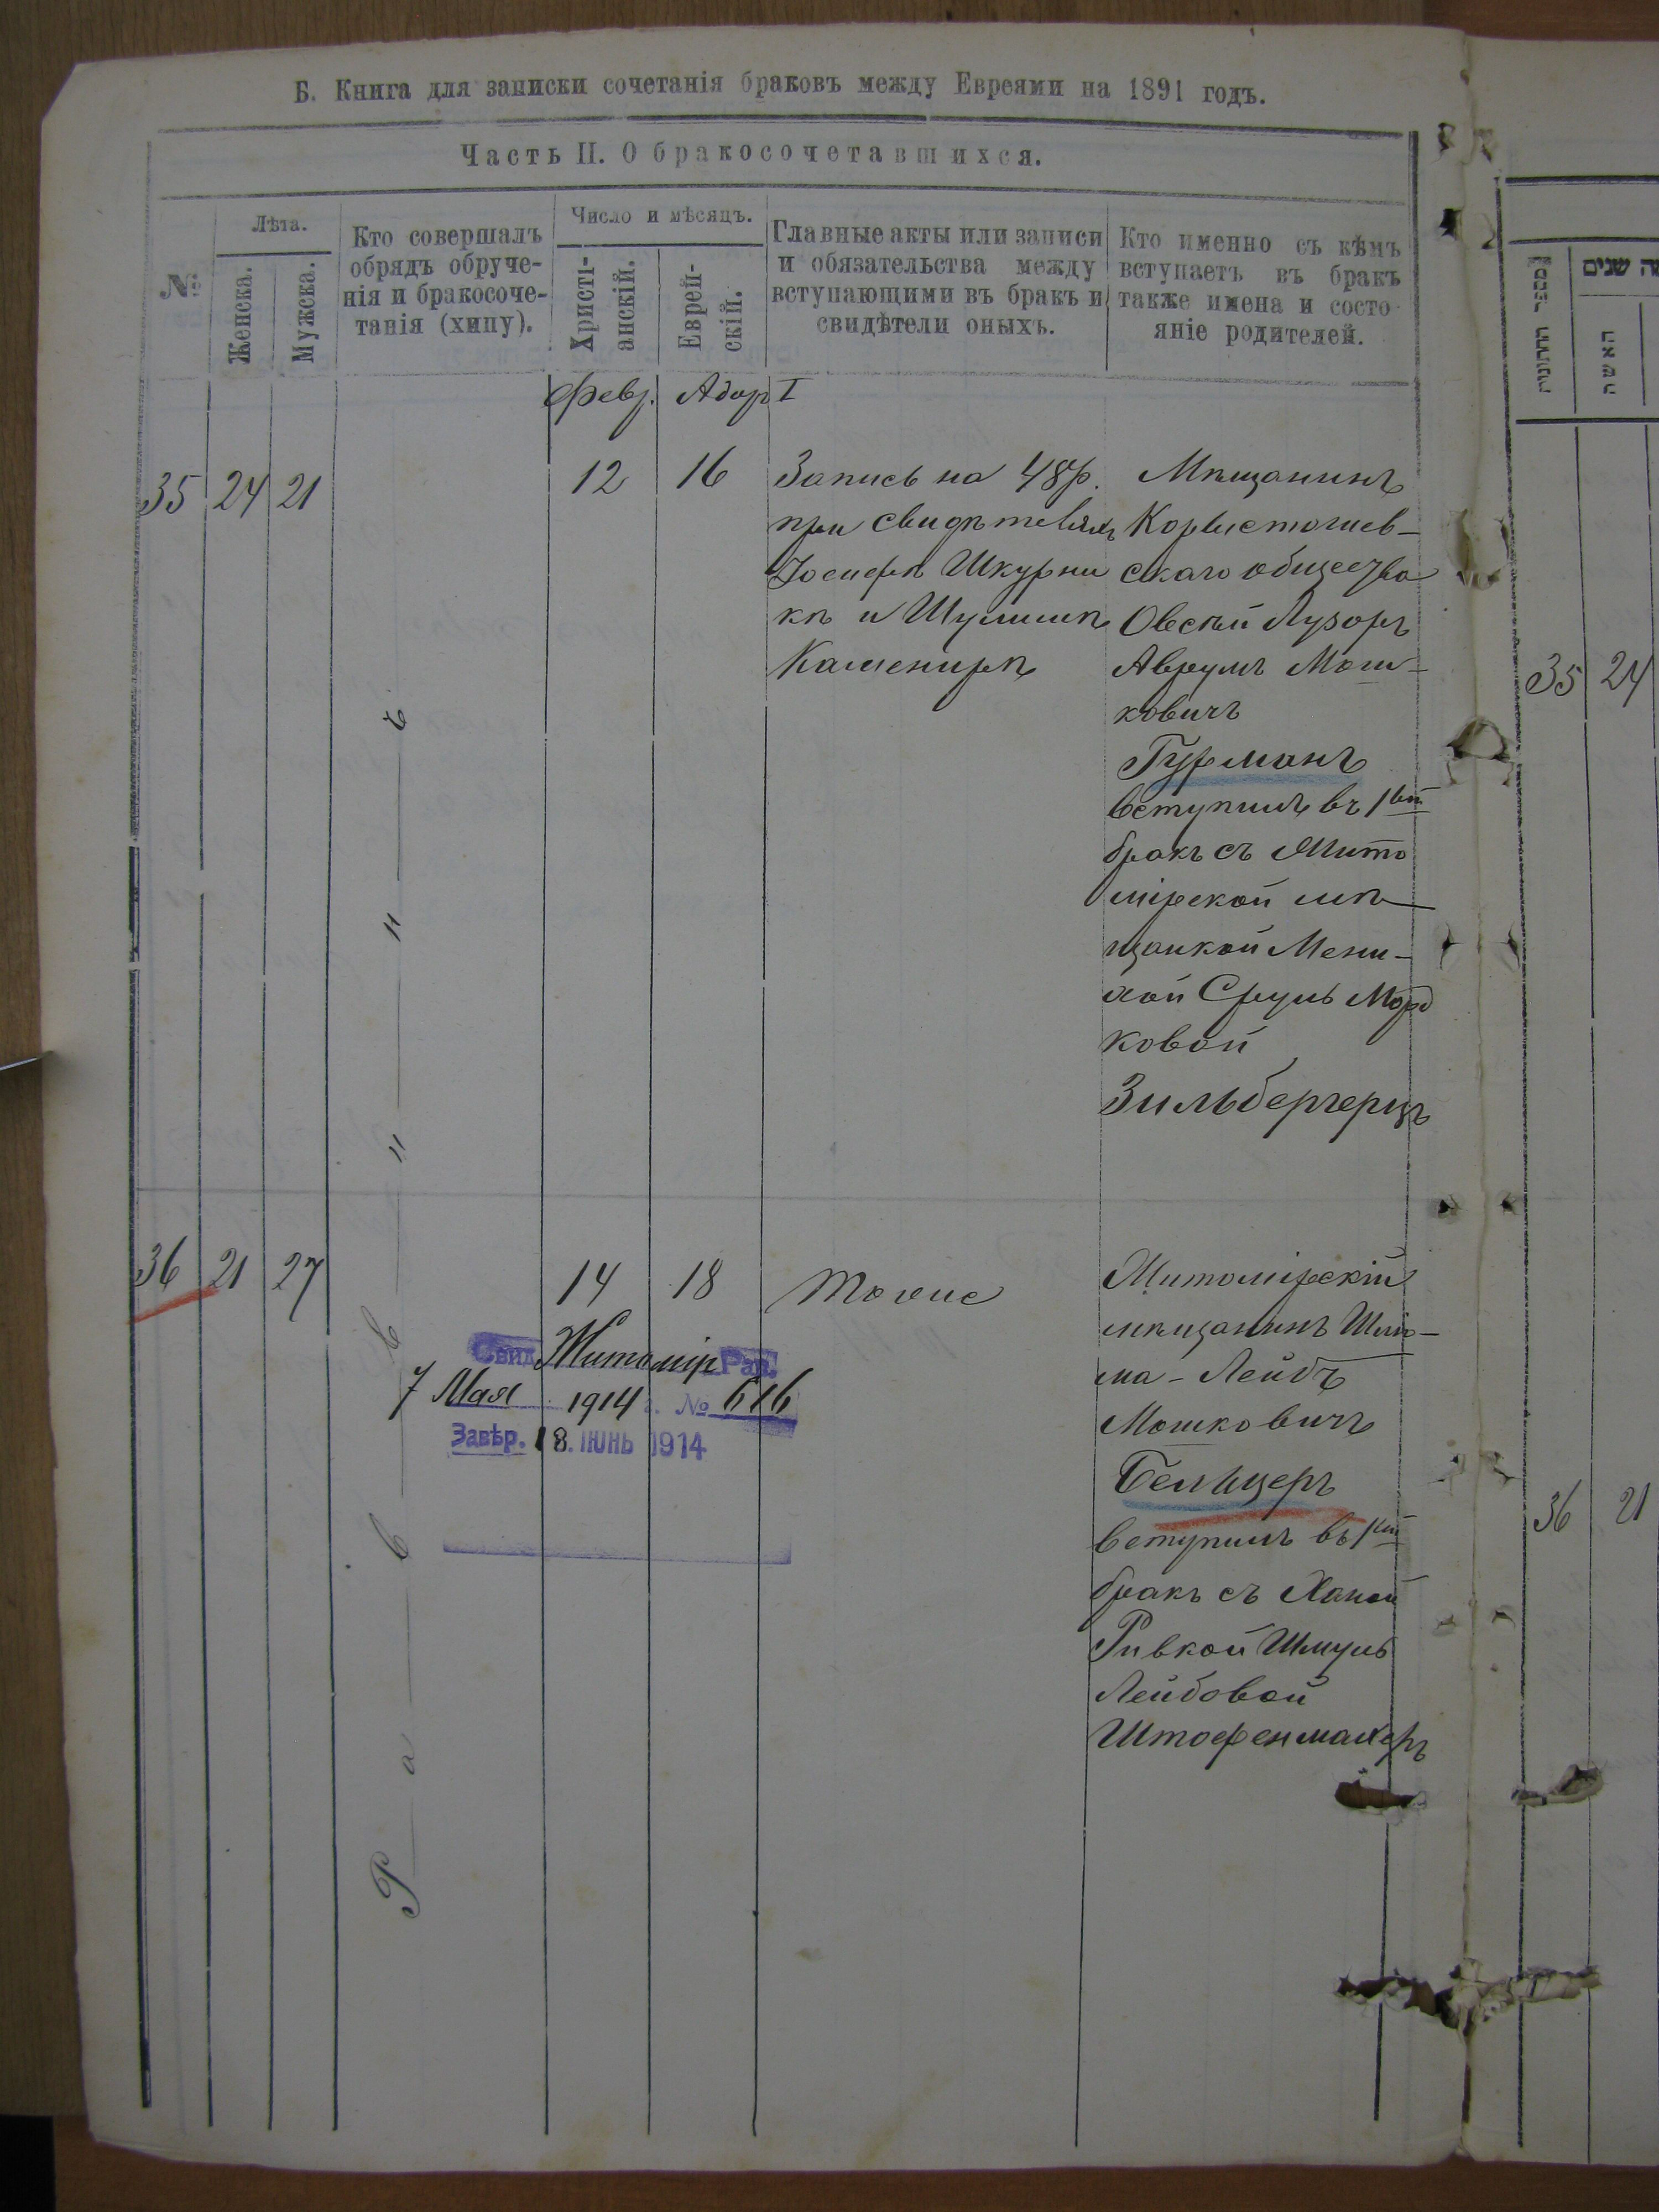 Б. Книга для записки сочетанія браковъ между Евреями на 1891 годъ.
Часть II. О бракосочетавшихся.
№
Лѣта.
Женска.
Мужска.
Кто совершалъ
обрядъ обруче-
нія и бракосоче-
танія (хипу).
Число и мѣсяцъ.
Христі-
анскій.
Еврей-
скій.
Главные акты или записи
и обязательства между
вступающими въ бракъ и
свидѣтели оныхъ.
Кто именно съ кѣмъ
вступаетъ въ бракъ
также имена и состо-
яніе родителей.
Февр. Адаръ I
35 24 21
12 16
Запись на 48 р.
при свидѣтеляхъ
Іосифѣ Шкурни
кѣ и Шулимѣ
Каменирѣ
Мѣщанинъ
Коростышев-
скаго общества
Овсѣй Лузоръ
Аврумъ Мош-
ковичъ
Гурманъ
вступилъ въ 1ый
бракъ съ Жито
мірской мѣ-
щанкой Мени-
хой Сруль Морд
ковой
Зильбергерцъ
36 21 27
14 18
Тоже
Житомірскій
мѣщанинъ Шлио-
ма-Лейбъ
Мошковичъ
Бельцеръ
вступилъ въ 1ый
бракъ съ Ханой
Ривкой Шмуль
Лейбовой
Штофенмахеръ
Свид. Житомір. Рав.
7 Мая 1914 г. № 616
Завѣр. 18. ІЮНЬ 1914
Раввинъ
מספר החתונה
שנים
האשה
35 24
36 21